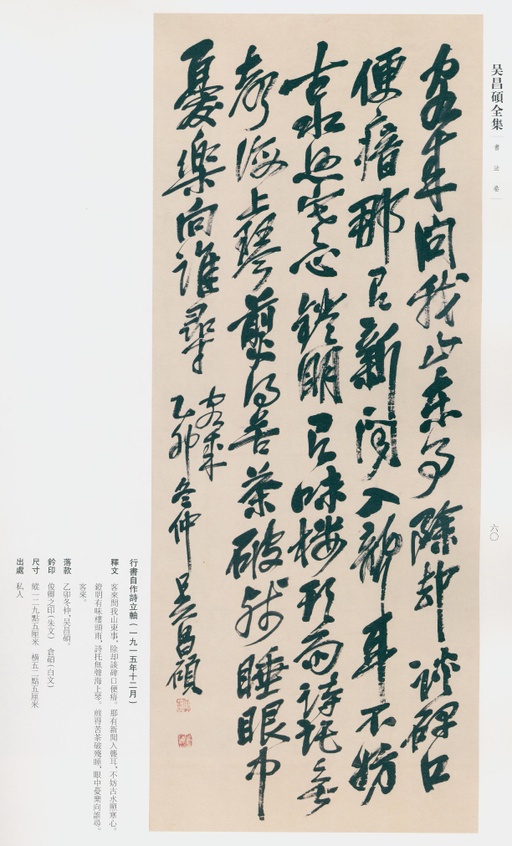 吴昌碩全集
書法卷
六〇
客來問我山東事除却談碑口
便瘖那有新聞入聾耳不妨
古水照寒心鐙明有味樓頭雨詩託無
聲海上琴煎得苦茶破殘睡眼中
憂樂向誰尋
客來
乙卯冬仲吳昌碩
行書自作詩立軸(一九一五年十二月)
釋文 客來問我山東事,除却談碑口便瘖。那有新聞入聾耳,不妨古水照寒心。
鐙明有味樓頭雨,詩托無聲海上琴。煎得苦茶破殘睡,眼中憂樂向誰尋。
客來。
落款 乙卯冬仲,吳昌碩。
鈐印 俊卿之印(朱文) 倉碩(白文)
尺寸 縱一二九點五厘米 橫五二點五厘米
出處 私人